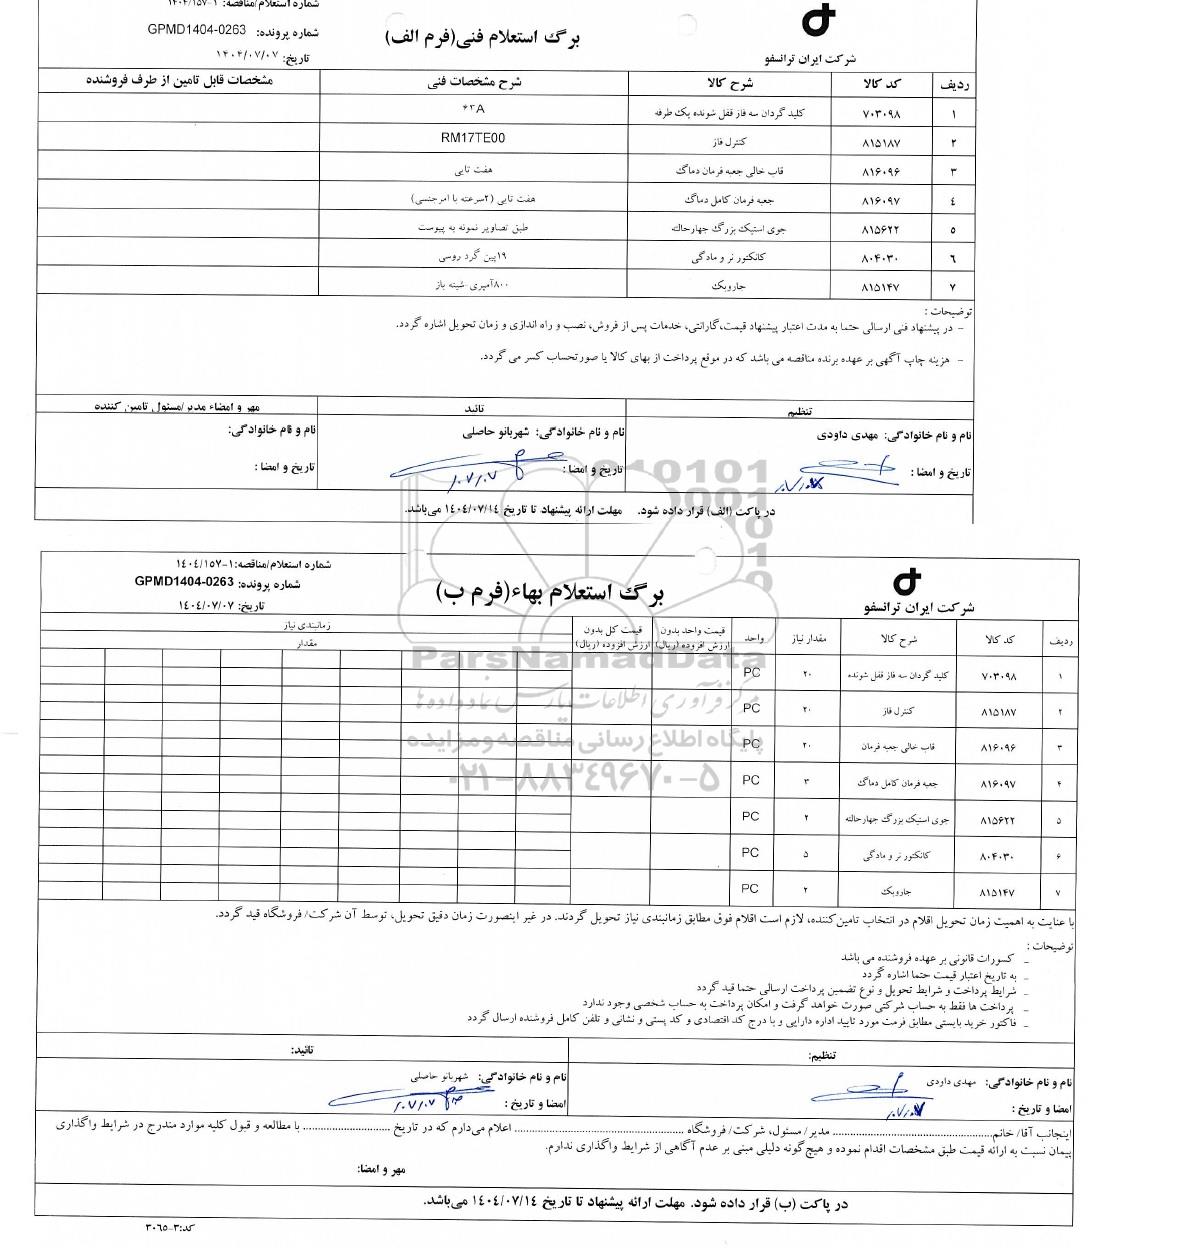 شماره استعلام/مناقصه: ۱-۱۴۰۴/۱۵۷
برگ استعلام فنی(فرم الف)
شماره پرونده: GPMD1404-0263
تاریخ: ۱۴۰۴/۰۷/۰۷
شرکت ایران ترانسفو
ردیف کد کالا شرح کالا شرح مشخصات فنی مشخصات قابل تامین از طرف فروشنده
۱ ۷۰۳۰۹۸ کلید گردان سه فاز قفل شونده یک طرفه ۶۳A
۲ ۸۱۵۱۸۷ کنترل فاز RM17TE00
۳ ۸۱۶۰۹۶ قاب خالی جعبه فرمان دماگ هفت تایی
٤ ۸۱۶۰۹۷ جعبه فرمان کامل دماگ هفت تایی (۲سرعته با امرجنسی)
۵ ۸۱۵۶۲۲ جوی استیک بزرگ چهارحالته طبق تصاویر نمونه به پیوست
٦ ۸۰۴۰۳۰ کانکتور نر و مادگی ۱۹پین گرد روسی
۷ ۸۱۵۱۴۷ جاروبک ۸۰۰آمپری-شینه باز
توضیحات :
– در پیشنهاد فنی ارسالی حتما به مدت اعتبار پیشنهاد قیمت،گارانتی، خدمات پس از فروش، نصب و راه اندازی و زمان تحویل اشاره گردد.
– هزینه چاپ آگهی بر عهده برنده مناقصه می باشد که در موقع پرداخت از بهای کالا یا صورتحساب کسر می گردد.
تنظیم تائید مهر و امضاء مدیر/مسئول تامین کننده
نام و نام خانوادگی: مهدی داودی نام و نام خانوادگی: شهربانو حاصلی نام و نام خانوادگی:
تاریخ و امضا : تاریخ و امضا : تاریخ و امضا :
در پاکت (الف) قرار داده شود. مهلت ارائه پیشنهاد تا تاریخ ۱٤۰٤/۰۷/۱٤ می‌باشد.
شماره استعلام/مناقصه:۱-۱٤۰٤/۱۵۷
برگ استعلام بهاء(فرم ب)
شماره پرونده: GPMD1404-0263
تاریخ: ۱٤۰٤/۰۷/۰۷
شرکت ایران ترانسفو
ردیف کد کالا شرح کالا مقدار نیاز واحد قیمت واحد بدون ارزش افزوده (ریال) قیمت کل بدون ارزش افزوده (ریال) زمانبندی نیاز
مقدار
۱ ۷۰۳۰۹۸ کلید گردان سه فاز قفل شونده ۲۰ PC
۲ ۸۱۵۱۸۷ کنترل فاز ۲۰ PC
۳ ۸۱۶۰۹۶ قاب خالی جعبه فرمان ۲۰ PC
۴ ۸۱۶۰۹۷ جعبه فرمان کامل دماگ ۳ PC
۵ ۸۱۵۶۲۲ جوی استیک بزرگ چهارحالته ۲ PC
۶ ۸۰۴۰۳۰ کانکتور نر و مادگی ۵ PC
۷ ۸۱۵۱۴۷ جاروبک ۲ PC
ParsNamadData
مرکز فرآوری اطلاعات پارس نماد داده ها
پایگاه اطلاع رسانی مناقصه و مزایده
۰۲۱-۸۸۳۴۹۶۷۰-۵
با عنایت به اهمیت زمان تحویل اقلام در انتخاب تامین‌کننده، لازم است اقلام فوق مطابق زمانبندی نیاز تحویل گردند. در غیر اینصورت زمان دقیق تحویل، توسط آن شرکت/ فروشگاه قید گردد.
توضیحات :
– کسورات قانونی بر عهده فروشنده می باشد
– به تاریخ اعتبار قیمت حتما اشاره گردد
– شرایط پرداخت و شرایط تحویل و نوع تضمین پرداخت ارسالی حتما قید گردد
– پرداخت ها فقط به حساب شرکتی صورت خواهد گرفت و امکان پرداخت به حساب شخصی وجود ندارد
– فاکتور خرید بایستی مطابق فرمت مورد تایید اداره دارایی و با درج کد اقتصادی و کد پستی و نشانی و تلفن کامل فروشنده ارسال گردد
تنظیم: تائید:
نام و نام خانوادگی: مهدی داودی نام و نام خانوادگی: شهربانو حاصلی
امضا و تاریخ : امضا و تاریخ :
اینجانب آقا/ خانم........................ مدیر/ مسئول، شرکت/ فروشگاه ........................ اعلام می‌دارم که در تاریخ ........................ با مطالعه و قبول کلیه موارد مندرج در شرایط واگذاری
پیمان نسبت به ارائه قیمت طبق مشخصات اقدام نموده و هیچ‌گونه دلیلی مبنی بر عدم آگاهی از شرایط واگذاری ندارم.
مهر و امضا:
در پاکت (ب) قرار داده شود. مهلت ارائه پیشنهاد تا تاریخ ۱٤۰٤/۰۷/۱٤ می‌باشد.
کد:۳-۳۰۶۵